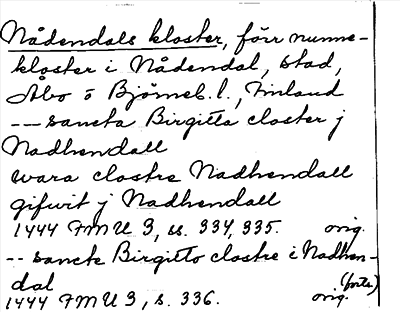 Nådendals kloster, förr nunne-
kloster i Nådendal, stad,
Åbo o Björneb. l., Finland
-- sancta Birgitta closter j
Nadhendall
wara clostre Nadhendall
gifwit j Nadhendall
1444 FMU 3, ss. 334, 335. orig.
-- sancte Birgitto clostre i Nadhen-
dal (forts.)
1444 FMU 3, s. 336. orig.